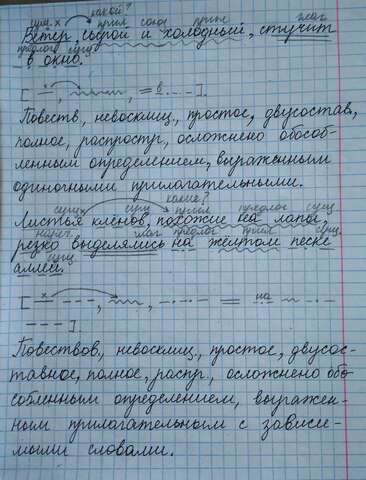 какой?
сущ. х прил союз прил глаг
Ветер, сырой и холодный, стучит
предлог сущ
в окно.
[ — , , = в ].
Повеств, невосклиц, простое, двусостав,
полное, распростр, осложнено обособ-
ленным определением, выраженным
одиночными прилагательными.
какие?
сущ сущ прил предлог сущ
Листья клёнов, похожие на лапы,
нареч глаг предлог прил сущ
резко выделялись на жёлтом песке
сущ.
аллей.
[ — , , = на ].
Повествов, невосклиц., простое, двусос-
тавное, полное, распр., осложнено обо-
собленным определением, выражен-
ным прилагательным с зависи-
мыми словами.